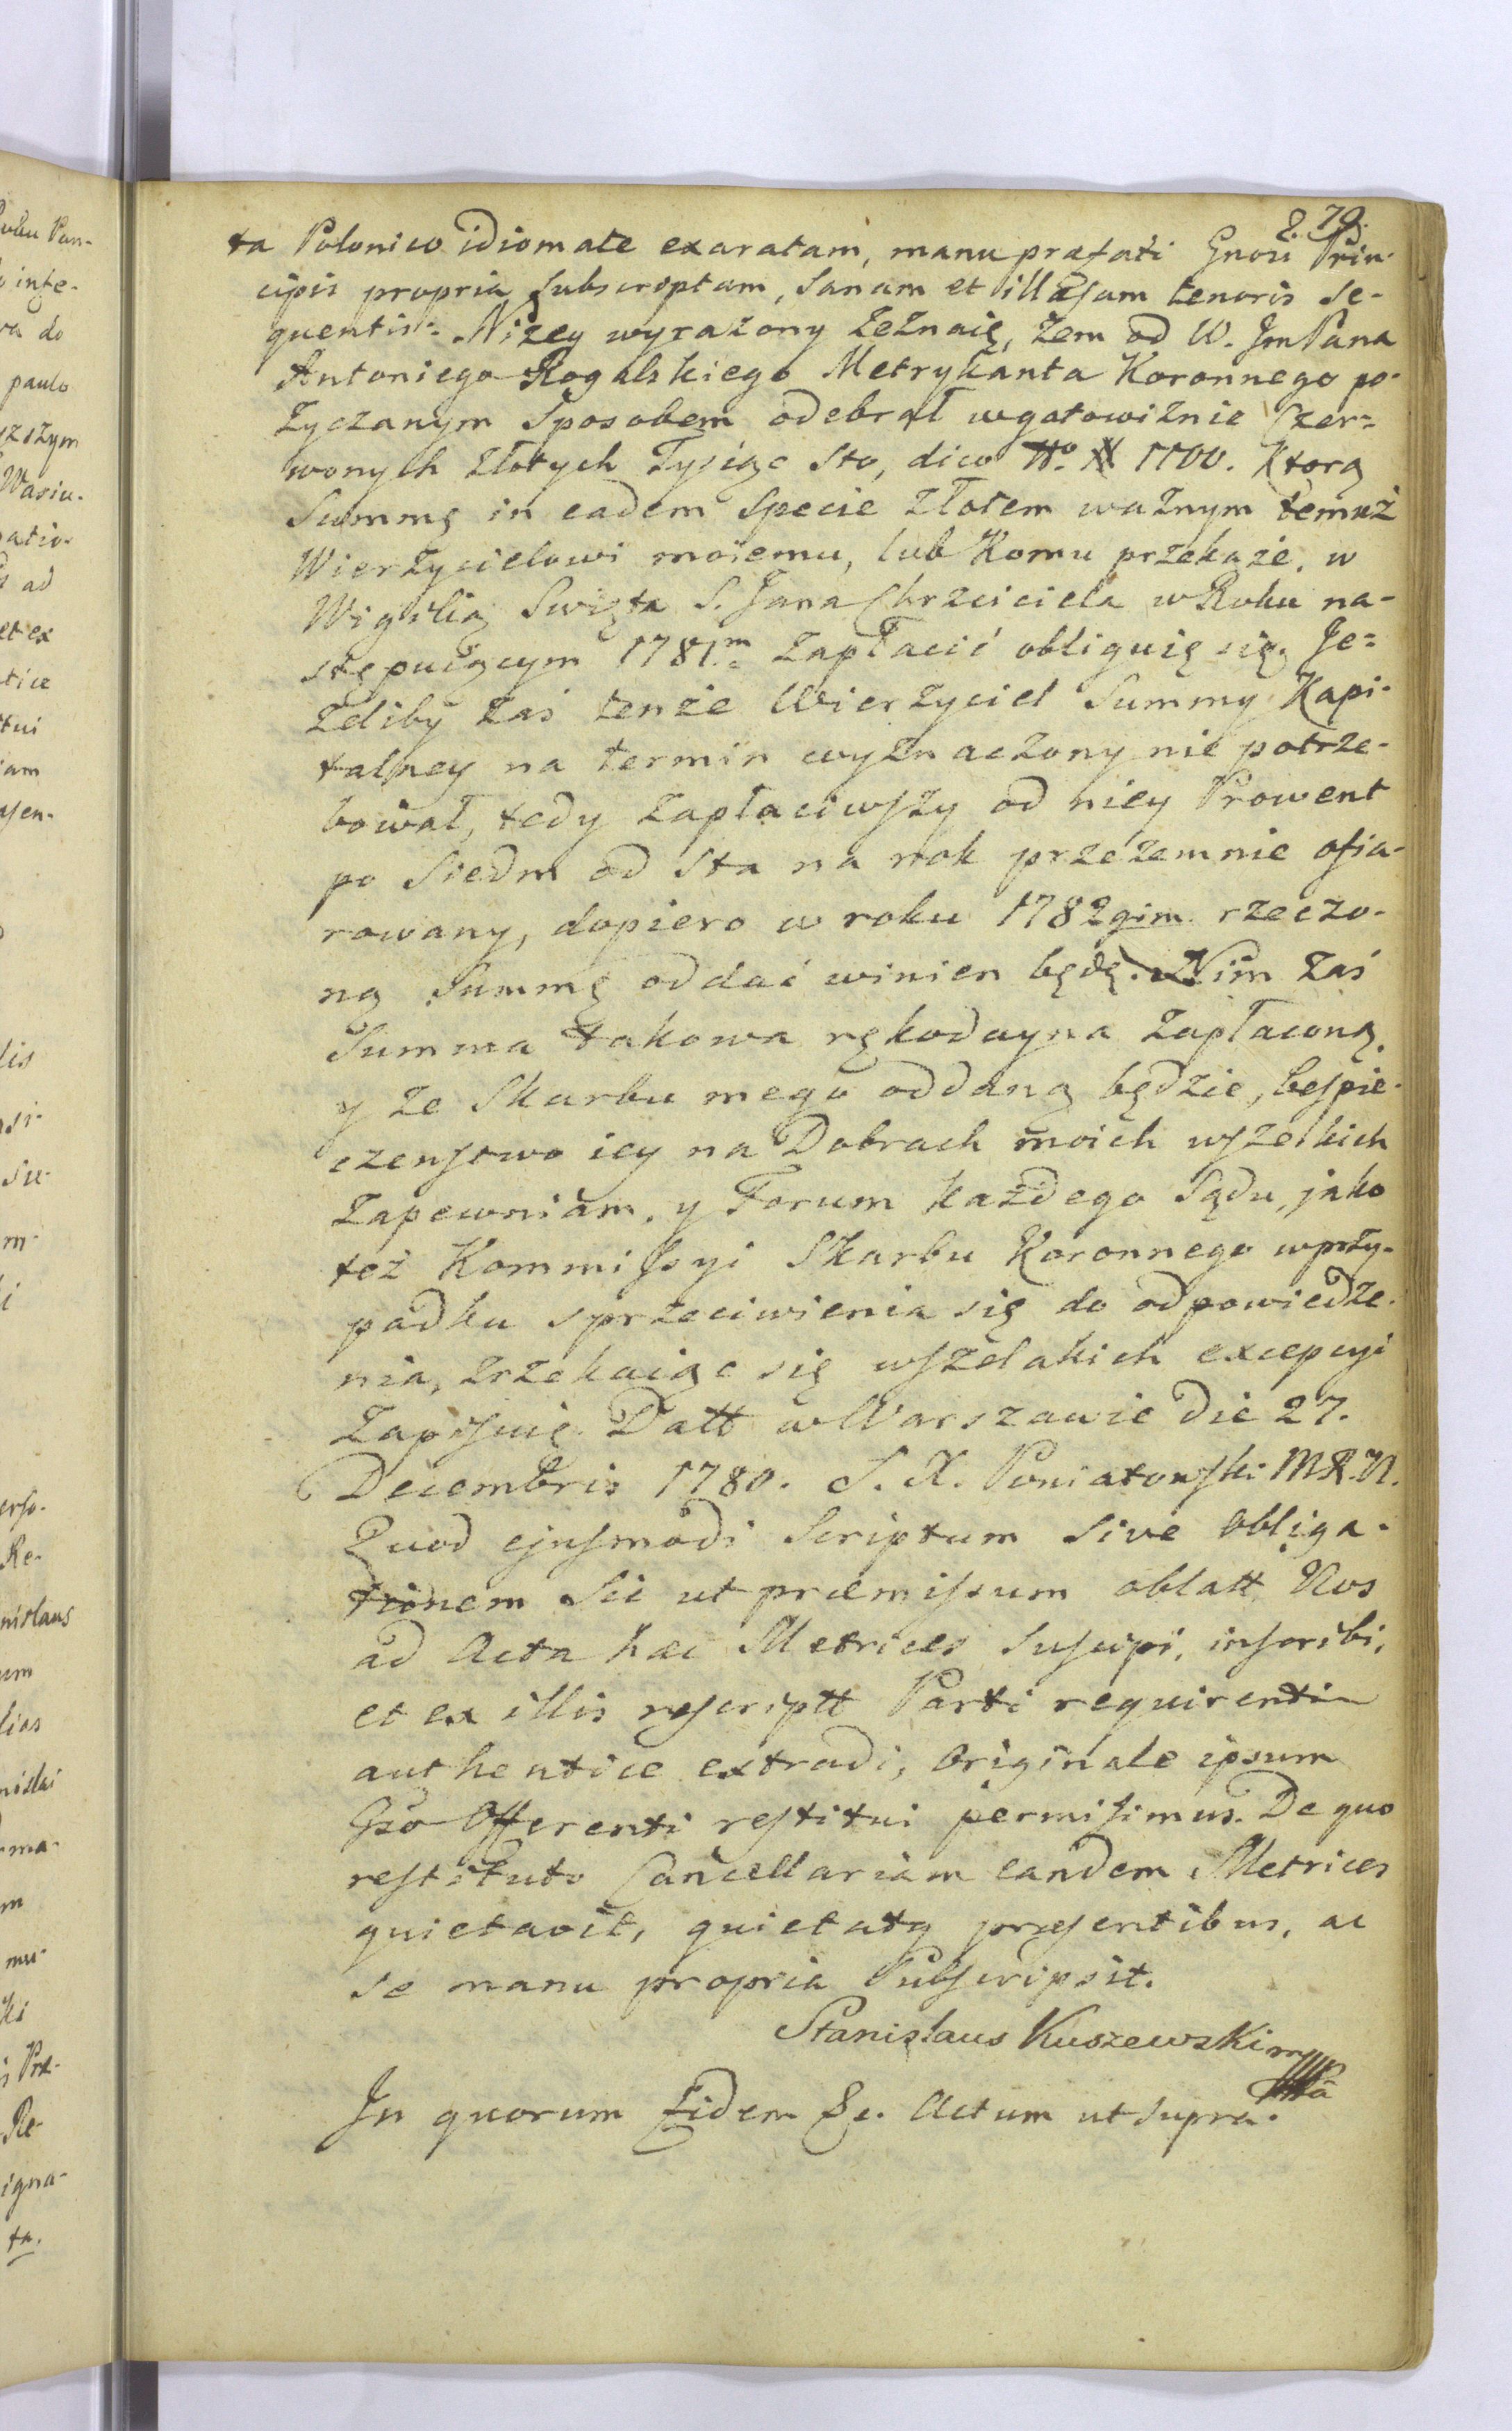 8. 79.
ta Polonico idiomate exaratam, manu præfati Gnosi Prin-
cipis propria subscriptam, sanam et illæsam tenoris se-
quentis:. Niżey wyrazony zeznaię, żem od W. Jm Pana
Antoniego Rogalskiego Metrykanta Koronnego po-
życzanym sposobem odebrał w gotowiźnie Czer=
wonych złotych Tysiąc sto, dico No. # 1100. Ktorą
Summę in eadem specie złotem ważnym temuż
Wierzycielowi moiemu, lub Komu przekaże, w
Wigilią Swięta S. Jana Chrzciciela w Roku na-
stępuiącym 1781.m zapłacić obliguię się. Je=
żeliby zaś tenże Wierzyciel Summy Kapi-
talney na termin wyznaczony nie potrze-
bował, tedy zapłaciwszy od niey Prowent
po siedm od sta na rok przezemnie ofia-
rowany, dopiero w roku 1782gim rzeczo-
ną summę oddać winien będę. Nim zaś
Summa takowa rękodayna zapłaconą
y ze Skarbu mego oddaną będzie, bespie-
czenstwo iey na Dobrach moich wszelkich
zapewniam, y Forum każdego Sądu, jako
też Kommissyi Skarbu Koronnego w przy-
padku sprzeciwienia się do odpowiedze-
nia, zrzekaiąc się wszelakich excepcyi
zapisuię. Datt w Warszawie die 27.
Decembris 1780. S. X. Poniatowski M R. N.
Quod ejusmodi Scriptum sive obliga-
tionem sic ut præmissum oblatt Nos
ad Acta hæc Metrices suscipi, inscribi,
et ex illis rescriptt Parti requirenti
authentice extradi, Originale ipsum
Gso Offerenti restitui permisimus. De quo
restituto Cancellariam eandem Metrices
quietavit, quietatq præsentibus, ac
se manu propria subscripsit.
Stanislaus Kuszewski mpp
In quorum Fidem &c. Actum ut supra.